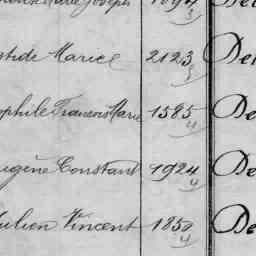 Joseph 1094 De
3
Marie 2123 De
3
ophile Francois Marie 1585 De
4
ugène Constant 1924 De
4
ulien Vincent 1850 De
4